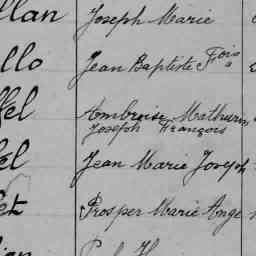 llan Joseph Marie
llo Jean Baptiste Fois
fel Ambroise Mathurin
Joseph François
el Jean Marie Joseph
et Prosper Marie Ange